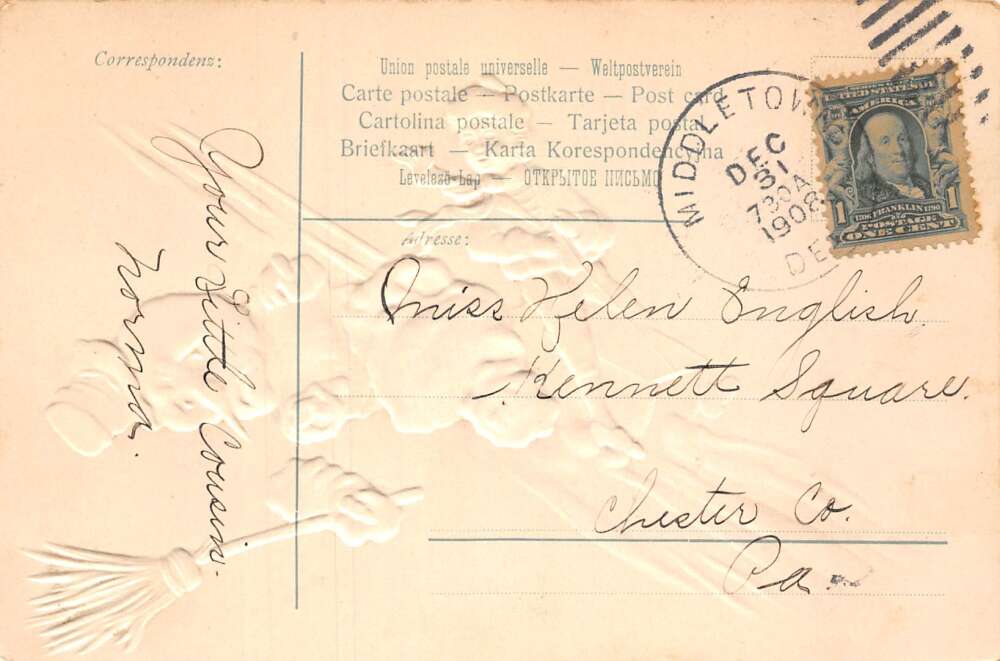 Correspondenz:
Union postale universelle — Weltpostverein
Carte postale — Postkarte — Post card
Cartolina postale — Tarjeta postal
Briefkaart — Karta Korespondencyjna
Levelező-Lap — ОТКРЫТОЕ ПИСЬМО
MIDDLETOW
DEC
31
730A
1908
DE
UNITED STATES OF
AMERICA
1 1
1706 FRANKLIN 1790
POSTAGE
ONE CENT
Adresse:
Miss Helen English.
Kennett Square.
Chester Co.
Pa.
Your Little Cousin.
Norma.